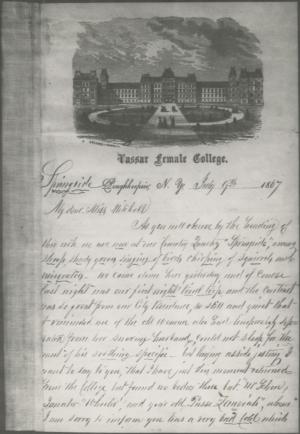 Vassar Female College.
Springside Poughkeepsie, N. Y. July 9th 1867
My dear Miss Mitchell
As you will observe by the heading of
this note we are now at our Country Quarters "Springside", among
sheep shady groves singing of birds chirping of squirrels and
We came down here yesterday and of course
last night was our first night's and the contrast
was so great from our City Residence, so still and quiet that
it reminded me of the old woman who had temporarily sep-
arated from her snoring husband, could not sleep for the
want of his soothing But laying aside jesting I
want to say to you, that I have just this moment returned
from the College but found no bodies there but Mr
and your old
I am sorry to inform you has a very bad cold which